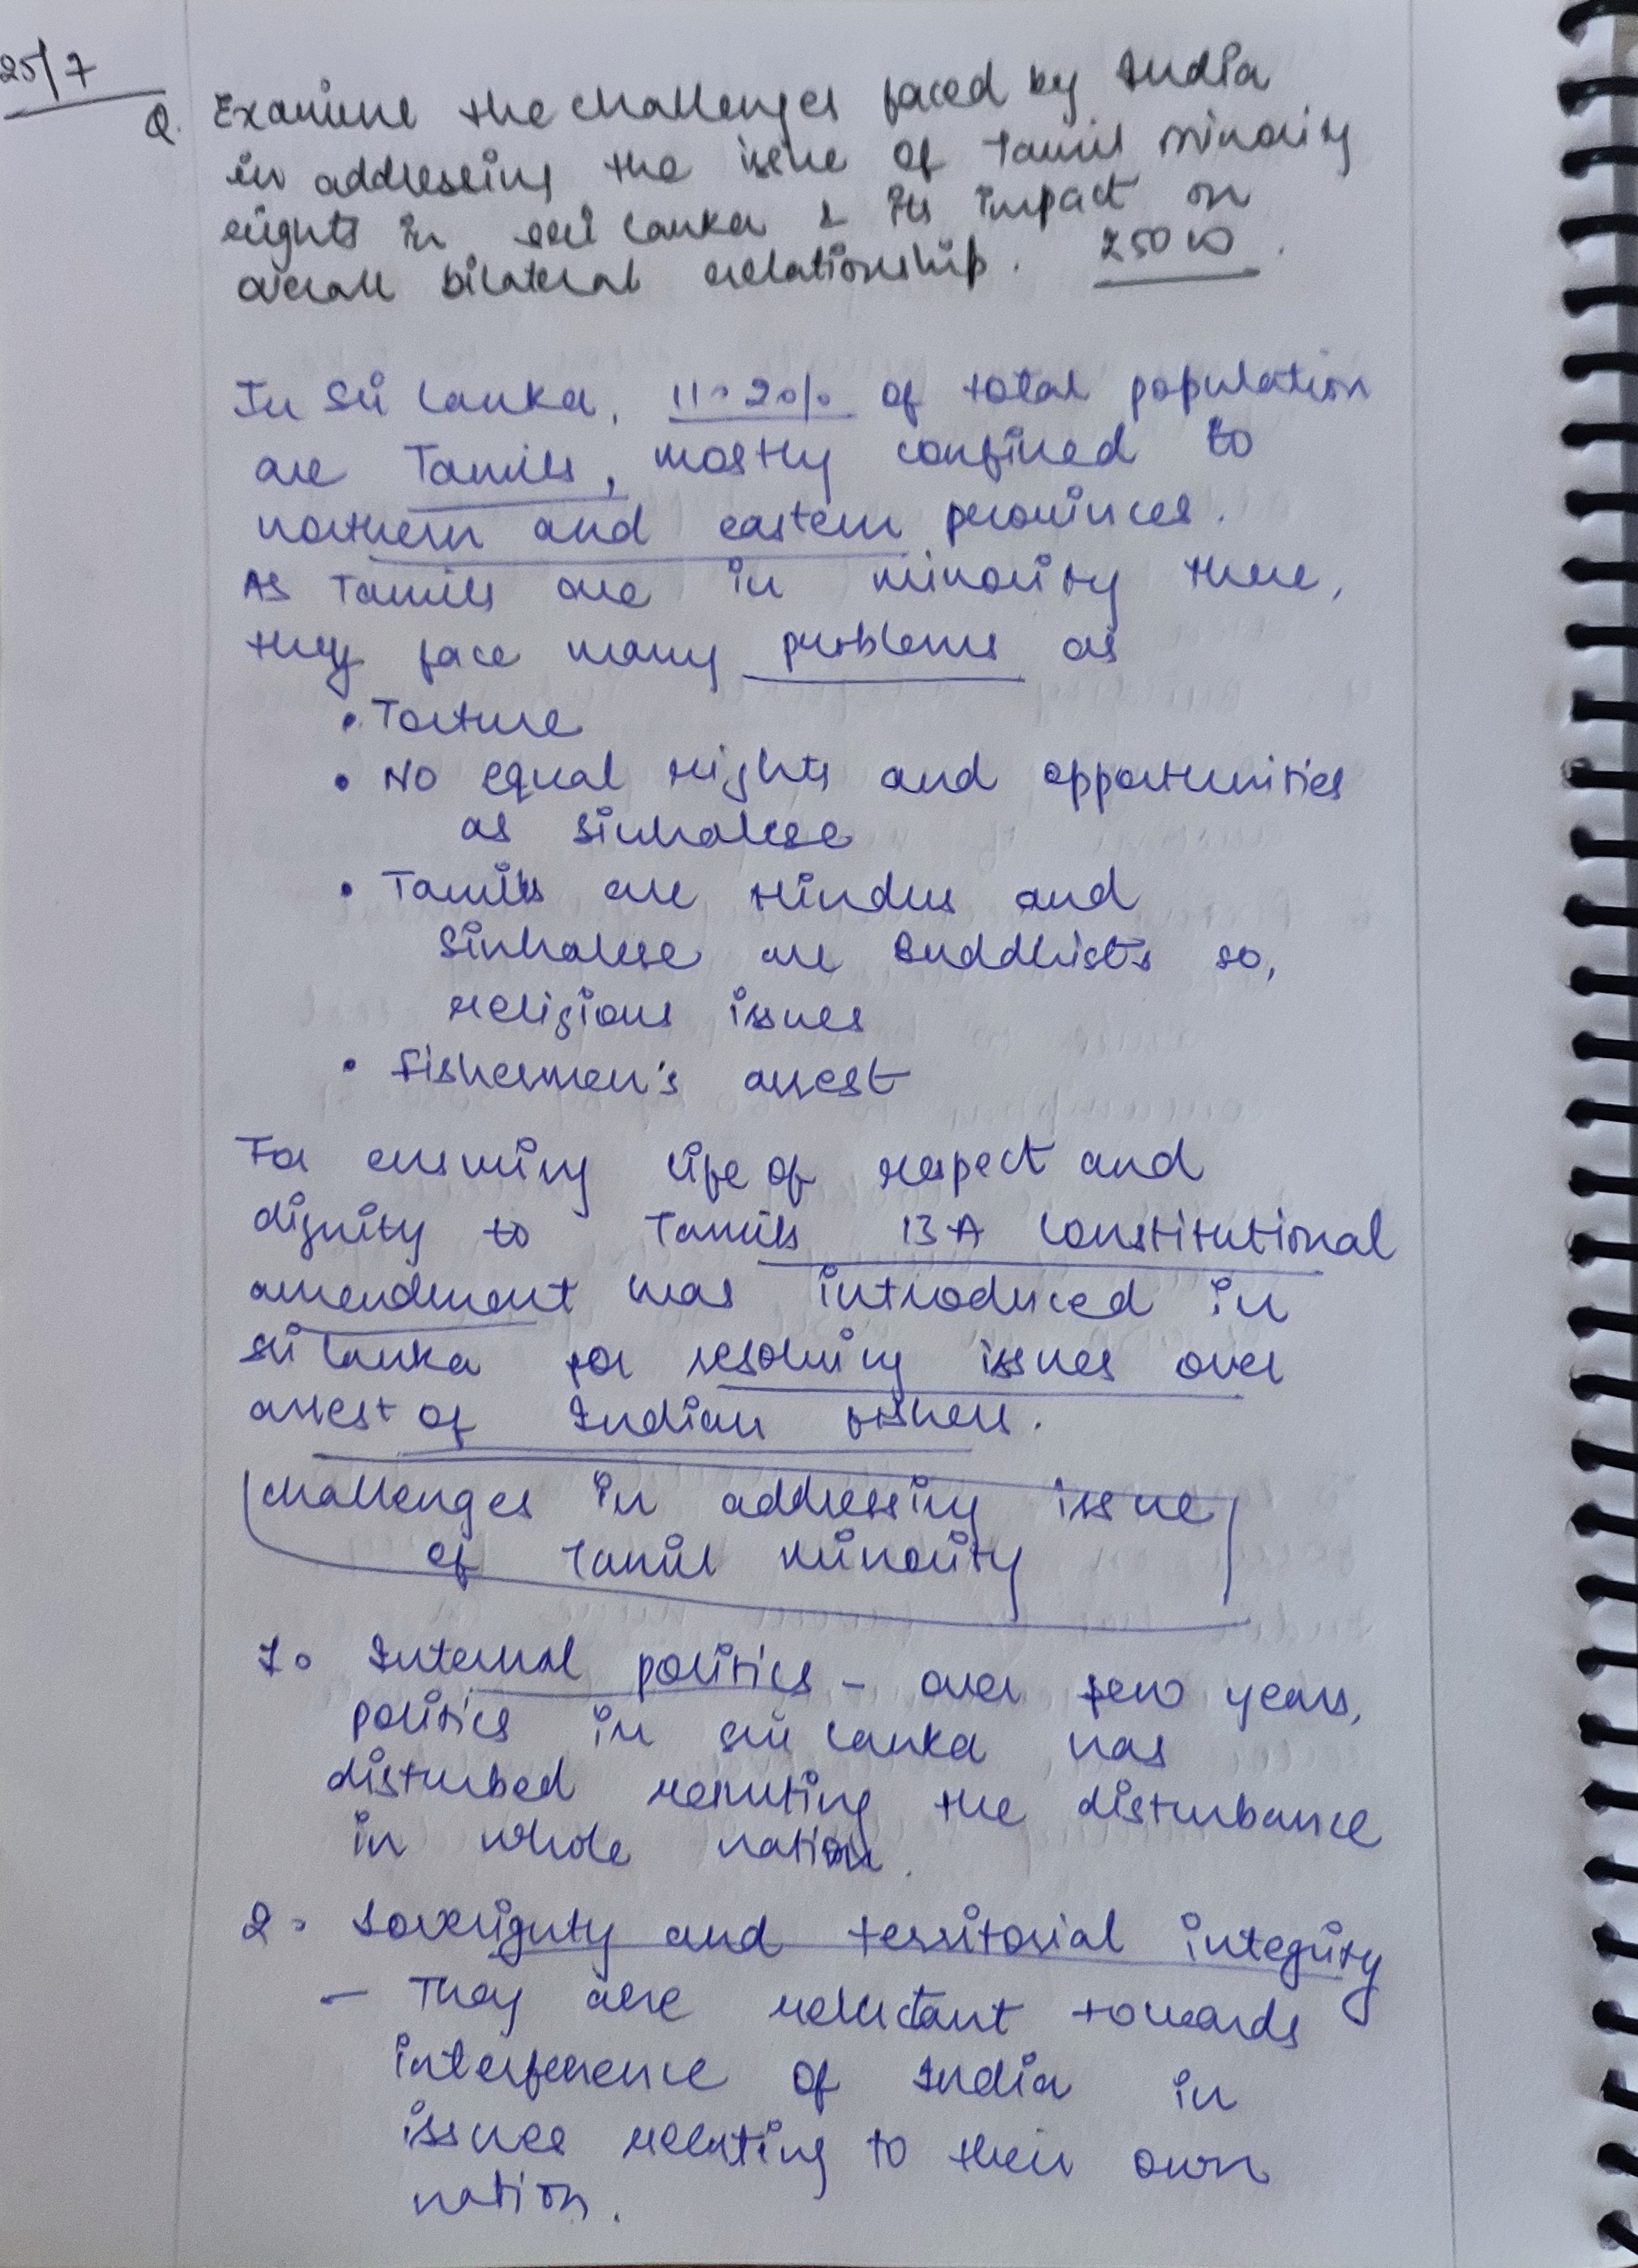 25/7
Q. Examine the challenges faced by India
in addressing the issue of Tamil minority
rights in sri lanka & its impact on
overall bilateral relationship. 250 w.
In Sri Lanka, 11.20% of total population
are Tamils, mostly confined to
northern and eastern provinces.
As Tamils are in minority there,
they face many problems as
• Torture
• No equal rights and opportunities
as sinhalese
• Tamils are Hindus and
Sinhalese are Buddhists so,
religious issues
• Fishermen's arrest
For ensuring life of respect and
dignity to Tamils 13 A Constitutional
amendment was introduced in
Sri Lanka for resolving issues over
arrest of Indian fishers.
Challenges in addressing issue
of Tamil minority
1. Internal politics - over few years,
politics in sri lanka has
disturbed resulting the disturbance
in whole nation.
2. Soveriguty and territorial integrity
- They are reluctant towards
interference of India in
issues relating to their own
nation.